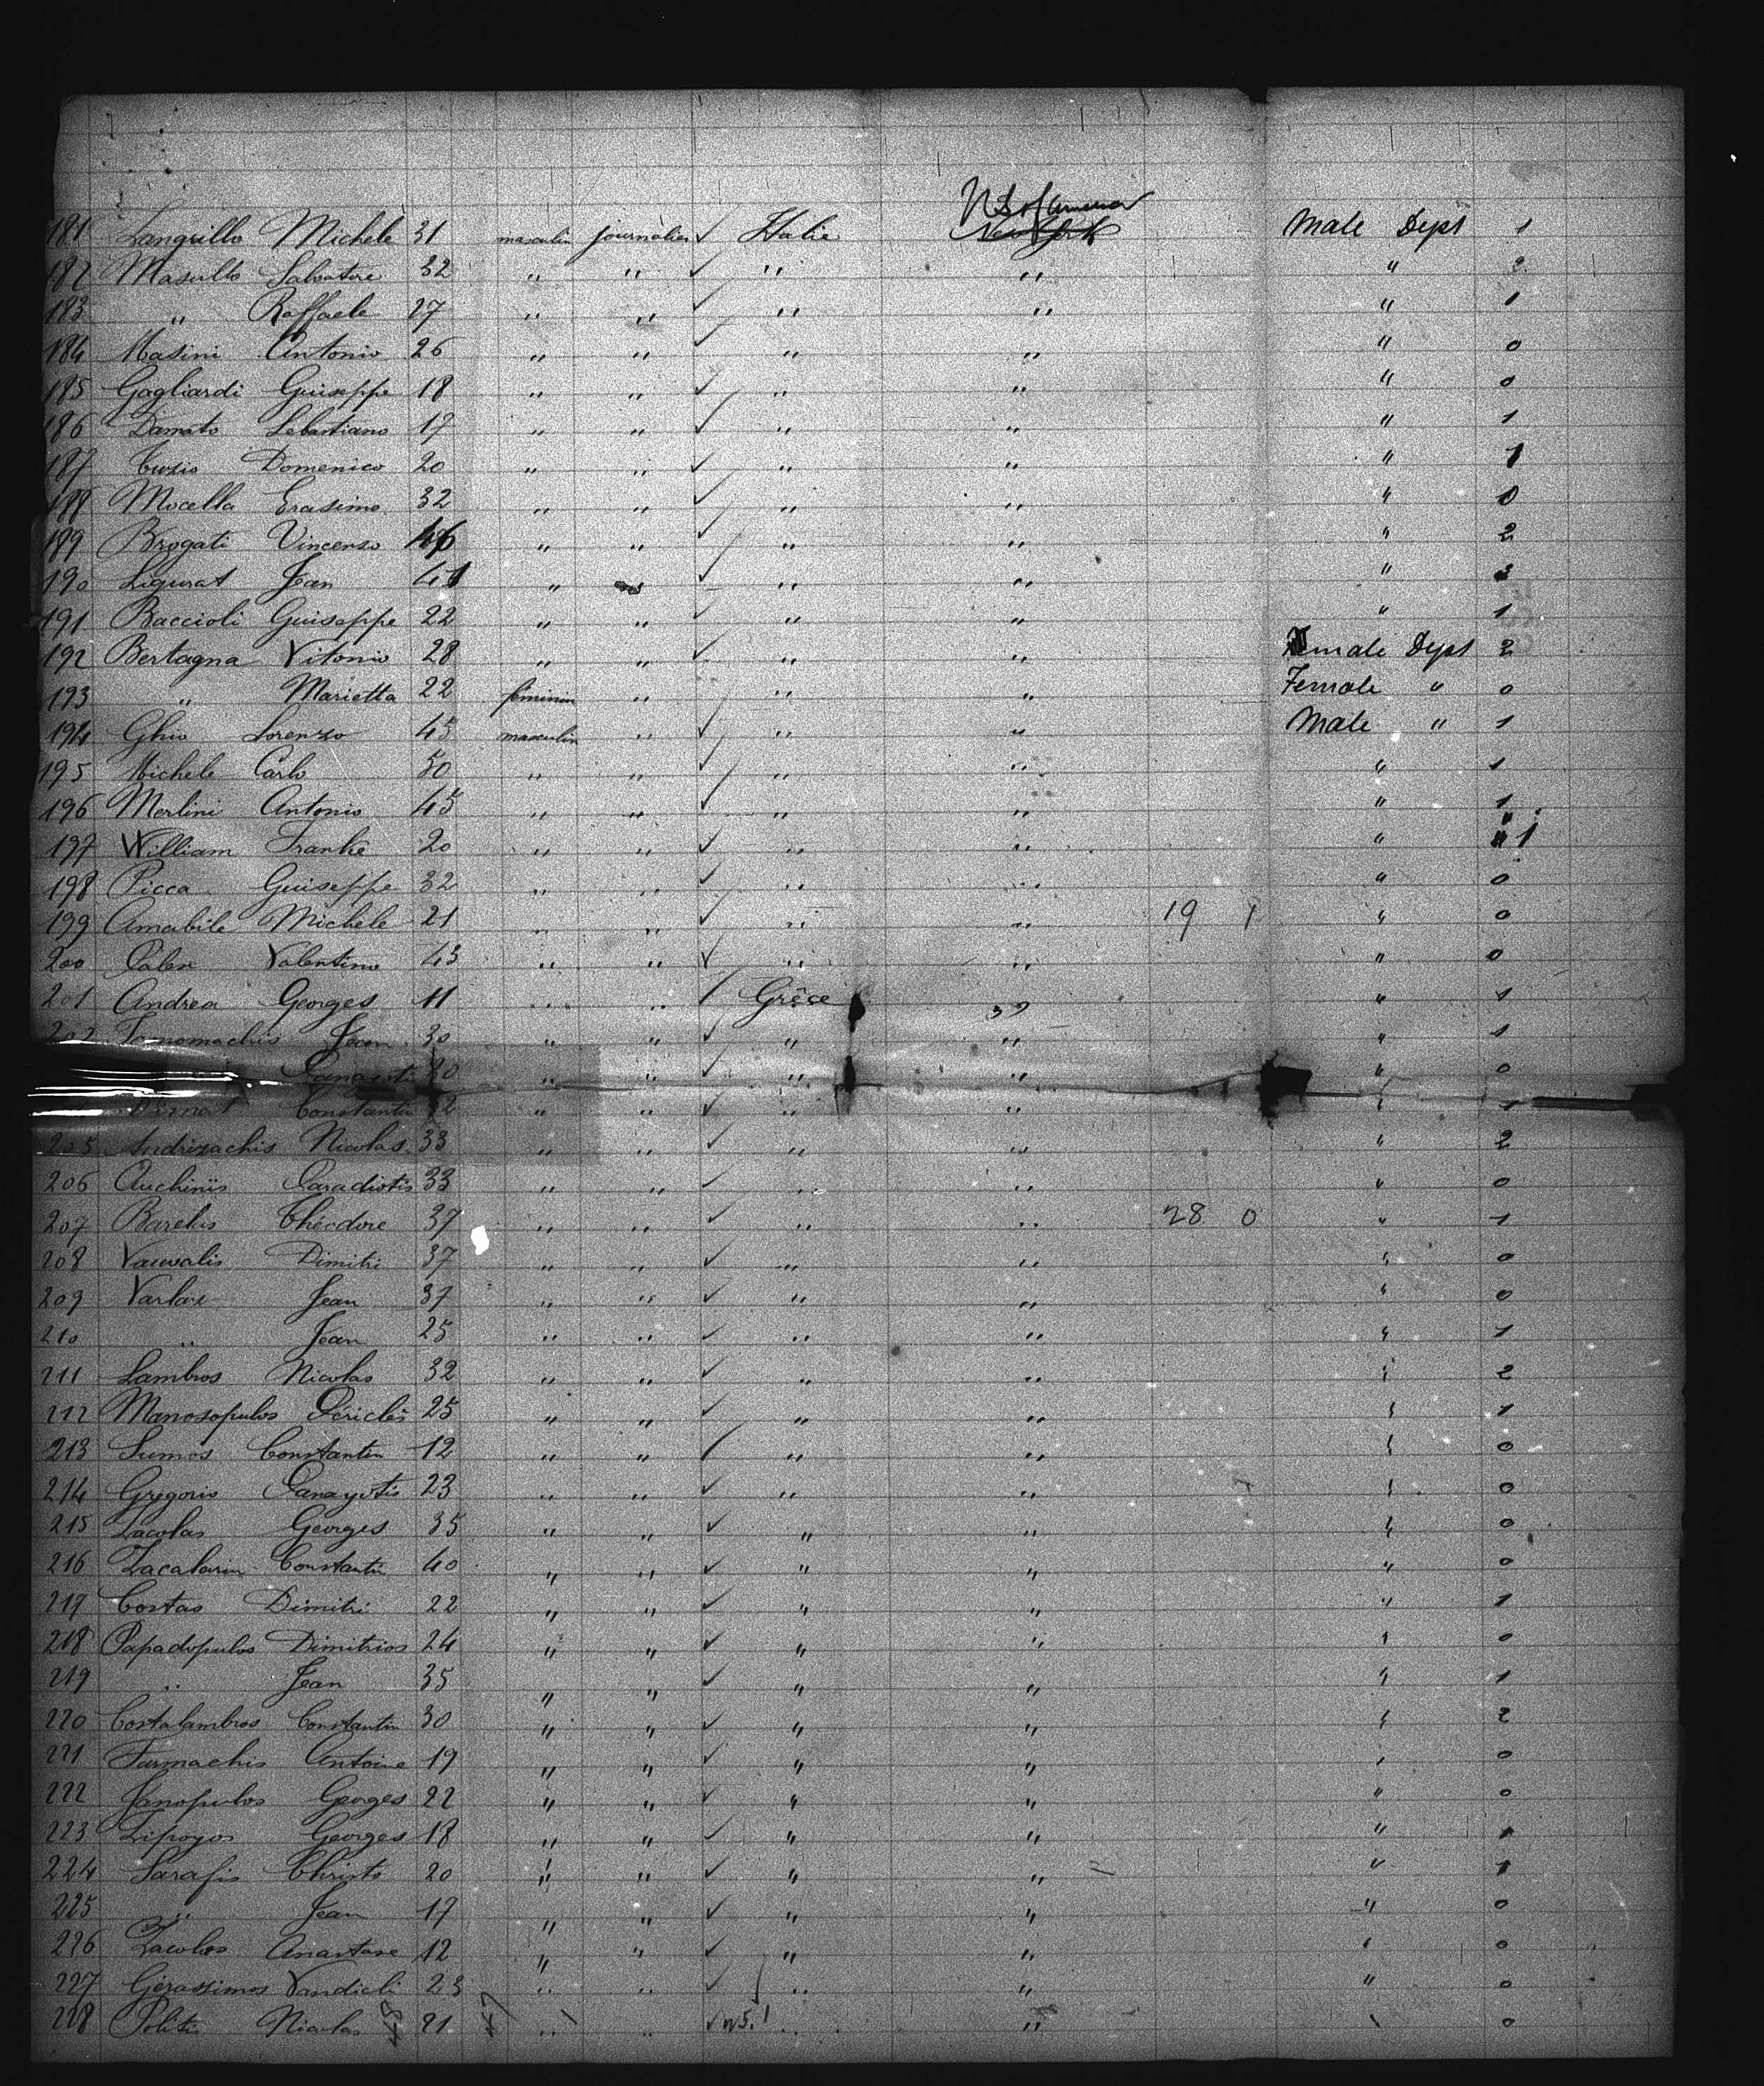 U S of America
181 Langrillo Michele 31 masculin journalier ✓ Italie New York Male Dept 1
182 Masullo Salvatore 32 " " ✓ " " " 2
183 " Raffaele 27 " " ✓ " " " 1
184 Masini Antonio 26 " " ✓ " " " 0
185 Gagliardi Guiseppe 18 " " ✓ " " " 0
186 Damato Sebastiano 17 " " ✓ " " " 1
187 Curio Domenico 20 " " ✓ " " " 1
188 Mocella Erasimo 32 " " ✓ " " " 0
189 Brogati Vincenzo " " ✓ " " " 2
190 Ligurat Jean 41 " " ✓ " " " 3
191 Baccioli Guiseppe 22 " " ✓ " " " 1
192 Bertagna Vitonio 28 " " ✓ " " male Dept 2
193 " Marietta 22 féminin " " " Female " 0
194 Ghio Lorenzo 45 masculin " ✓ " " Male " 1
195 Michele Carlo 30 " " ✓ " " " 1
196 Merlini Antonio 45 " " ✓ " " " 1
197 William Franke 20 " " ✓ " " " 1
198 Picca Guiseppe 32 " " ✓ " " " 0
199 Amabile Michele 21 " " ✓ " " 19 1 " 0
200 Valentino 43 " " ✓ " " " 0
201 Andrea Georges 11 " " / Grèce " " 1
202 Jean 30 " " ✓ " " " 1
" " ✓ " " " 0
Constantin " " ✓ " " " 1
205 Andrizachis Nicolas 33 " " ✓ " " " 2
206 Auchiniis Paradiotis 33 " " ✓ " " " 0
207 Barelis Théodore 37 " " ✓ " " 28 0 " 1
208 Dimitri 37 " " ✓ " " " 0
209 Jean 37 " " ✓ " " " 0
210 " Jean 25 " " ✓ " " " 1
211 Lambros Nicolas 32 " " ✓ " " " 2
212 Manosopulos Périclès 25 " " ✓ " " " 1
213 Sumos Constantin 12 " " / " " " 0
214 Gregoris Panayotis 23 " " ✓ " " " 0
215 Lacolas Georges 35 " " ✓ " " " 0
216 Constantin 40 " " ✓ " " " 0
217 Costas Dimitri 22 " " ✓ " " " 1
218 Papadopulos Dimitrios 24 " " ✓ " " " 0
219 " Jean 35 " " ✓ " " " 1
220 Costalambros Constantin 30 " " ✓ " " " 2
221 Furmachis Antoine 19 " " ✓ " " " 0
222 Janopulos Georges 22 " " ✓ " " " 0
223 Lipoyos Georges 18 " " ✓ " " " 1
224 Sarafis Christo 20 " " ✓ " " " 1
225 " Jean 17 " " ✓ " " " 0
226 Anastase 12 " " ✓ " " " 0
227 Gérassimos Vandicli 23 " " ✓ " " " 0
228 Politis Nicolas 21 " " ✓ " " " 0